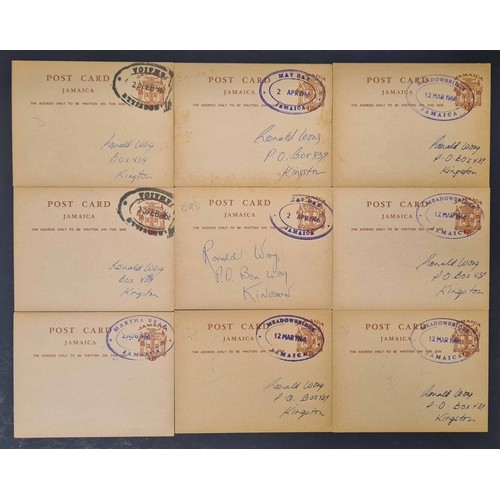 POST CARD
JAMAICA
THE ADDRESS ONLY TO BE WRITTEN ON THIS SIDE
JAMAICA
Ronald Wong
Box 439
Kingston
POST CARD
JAMAICA
THE ADDRESS ONLY TO BE WRITTEN ON THIS SIDE
MAY DAY
2 APR 1966
JAMAICA
Ronald Wong
P.O. Box 439
Kingston
POST CARD
JAMAICA
THE ADDRESS ONLY TO BE WRITTEN ON THIS SIDE
MEADOWBRIDGE
12 MAR 1966
JAMAICA
Ronald Wong
P.O. Box 439
Kingston
POST CARD
JAMAICA
THE ADDRESS ONLY TO BE WRITTEN ON THIS SIDE
JAMAICA
Ronald Wong
Box 439
Kingston
POST CARD
JAMAICA
THE ADDRESS ONLY TO BE WRITTEN ON THIS SIDE
MAY DAY
2 APR 1966
JAMAICA
Ronald Wong
P.O. Box 439
KINGSTON
POST CARD
JAMAICA
THE ADDRESS ONLY TO BE WRITTEN ON THIS SIDE
MEADOWBRIDGE
12 MAR 1966
JAMAICA
Ronald Wong
P.O. Box 439
Kingston
POST CARD
JAMAICA
THE ADDRESS ONLY TO BE WRITTEN ON THIS SIDE
MARTHA BRAE
JAMAICA
POST CARD
JAMAICA
THE ADDRESS ONLY TO BE WRITTEN ON THIS SIDE
MEADOWBRIDGE
12 MAR 1966
JAMAICA
Ronald Wong
P.O. Box 439
Kingston
POST CARD
JAMAICA
THE ADDRESS ONLY TO BE WRITTEN ON THIS SIDE
MEADOWBRIDGE
12 MAR 1966
JAMAICA
Ronald Wong
P.O. Box 439
Kingston